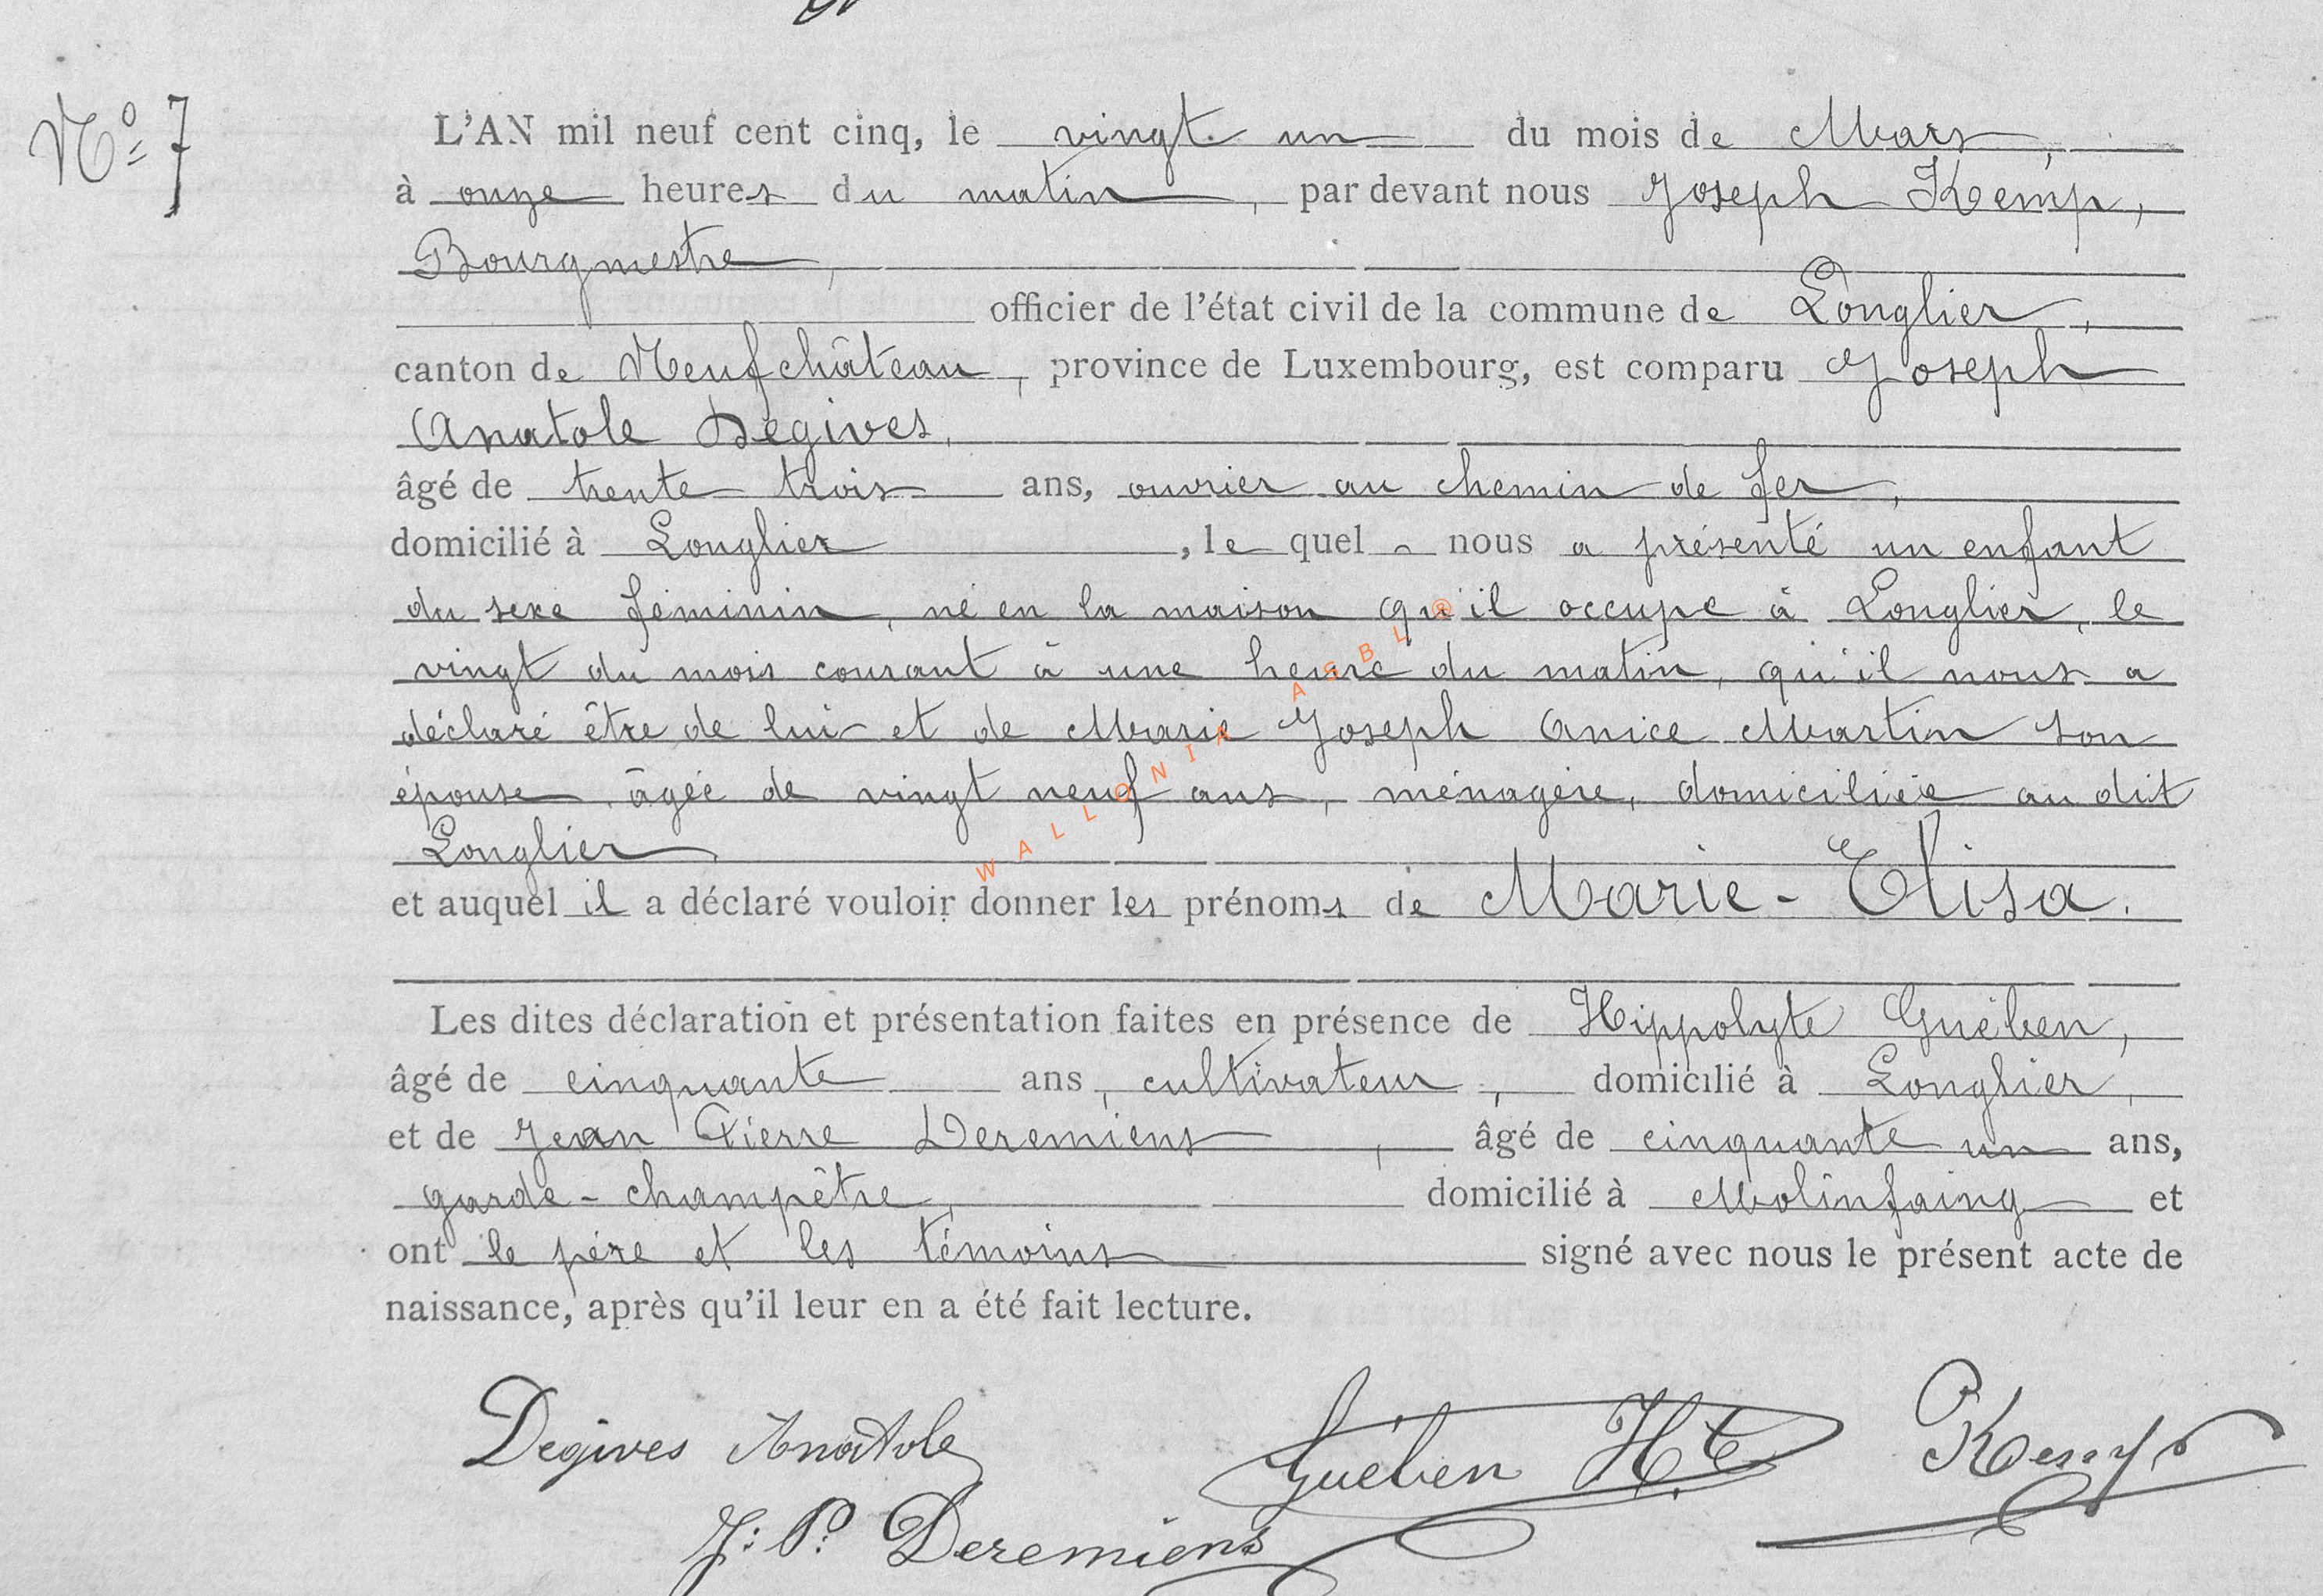 Nº 7
L'AN mil neuf cent cinq, le vingt un du mois de Mars,
à onze heures du matin, par devant nous Joseph Kemp,
Bourgmestre,
officier de l'état civil de la commune de Longlier,
canton de Neufchâteau, province de Luxembourg, est comparu Joseph
Anatole Degives,
âgé de trente trois ans, ouvrier au chemin de fer,
domicilié à Longlier, le quel nous a présenté un enfant
du sexe féminin, né en la maison qu'il occupe à Longlier, le
vingt du mois courant à une heure du matin, qu'il nous a
déclaré être de lui et de Marie Joseph Anice Martin son
épouse, âgée de vingt neuf ans, ménagère, domiciliée au dit
Longlier
et auquel il a déclaré vouloir donner les prénoms de Marie-Elisa.
Les dites déclaration et présentation faites en présence de Hippolyte Guében,
âgé de cinquante ans, cultivateur, domicilié à Longlier,
et de Jean Pierre Deremiens, âgé de cinquante un ans,
garde-champêtre, domicilié à Molinfaing et
ont le père et les témoins signé avec nous le présent acte de
naissance, après qu'il leur en a été fait lecture.
Degives Anatole Guében H.te Kemp
J: P. Deremiens
WALLONIA ASBL ®